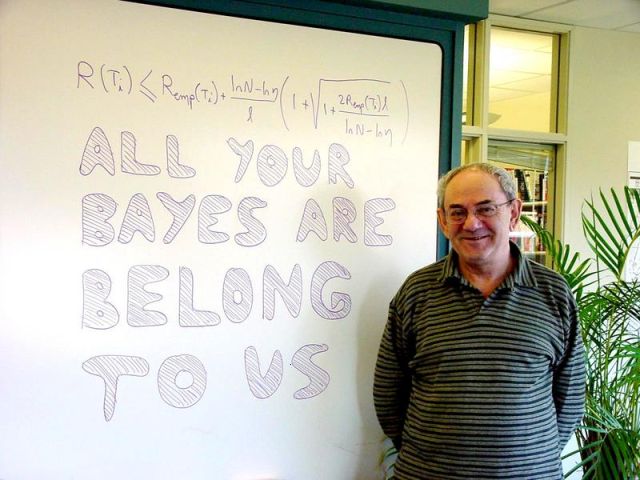 R(Ti) ≤ Remp(Ti) + lnN-lnη/l (1+√1+2Remp(Ti)l/lnN-lnη)
ALL YOUR
BAYES ARE
BELONG
TO US